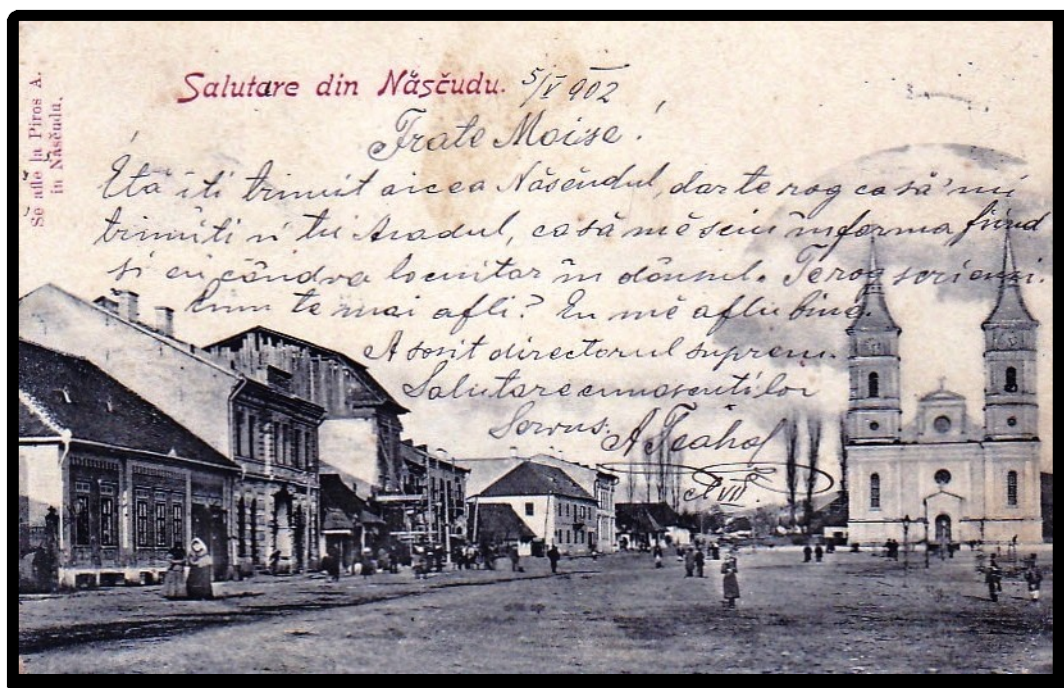 Salutare din Năsčudu. 5/V 902
Sĕ află la Piros A.
in Năsčudu.
Frate Moise!
Ĕtă iti trimit aicea Năsĕudul, dar te rog ca să'mi
trimiti si tu Aradul, ca să mĕ sciu informa fiind
si eu cândva locuitor în dânsul. Te rog scrie-mi
cum te mai afli? Eu mĕ aflu bine.
A sosit directorul suprem.
Salutare cunoscutilor
Servus. A
VII.